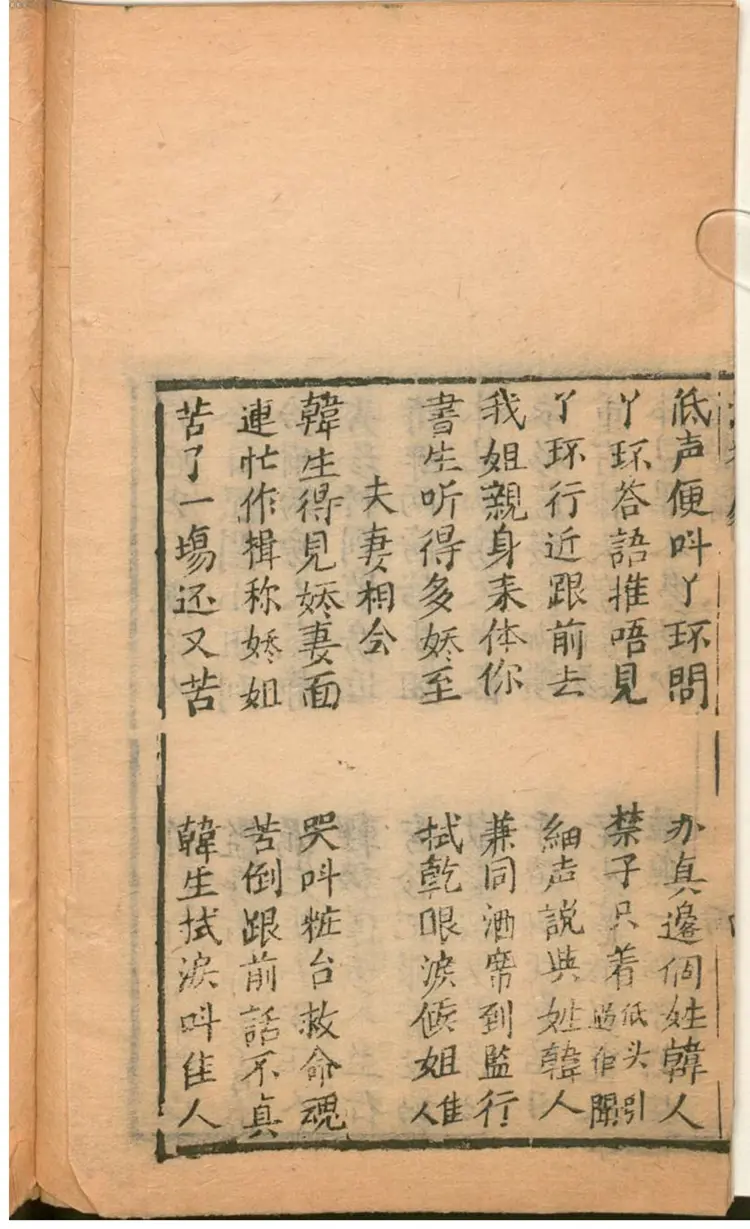 低声便呌丫环問　办真邊個姓韓人
丫环答語推唔見　禁子只着低头引過佢聞
了环行近跟前去　細声説與姓韓人
我姐親身来体你　兼同酒席到監行
書生听得多娇至　拭乾眼淚候姐佳人
夫妻相会
韓生得見娇妻面　哭呌粧台救命魂
連忙作揖称娇姐　苦倒跟前話不真
苦了一塲还又苦　韓生拭淚呌佳人